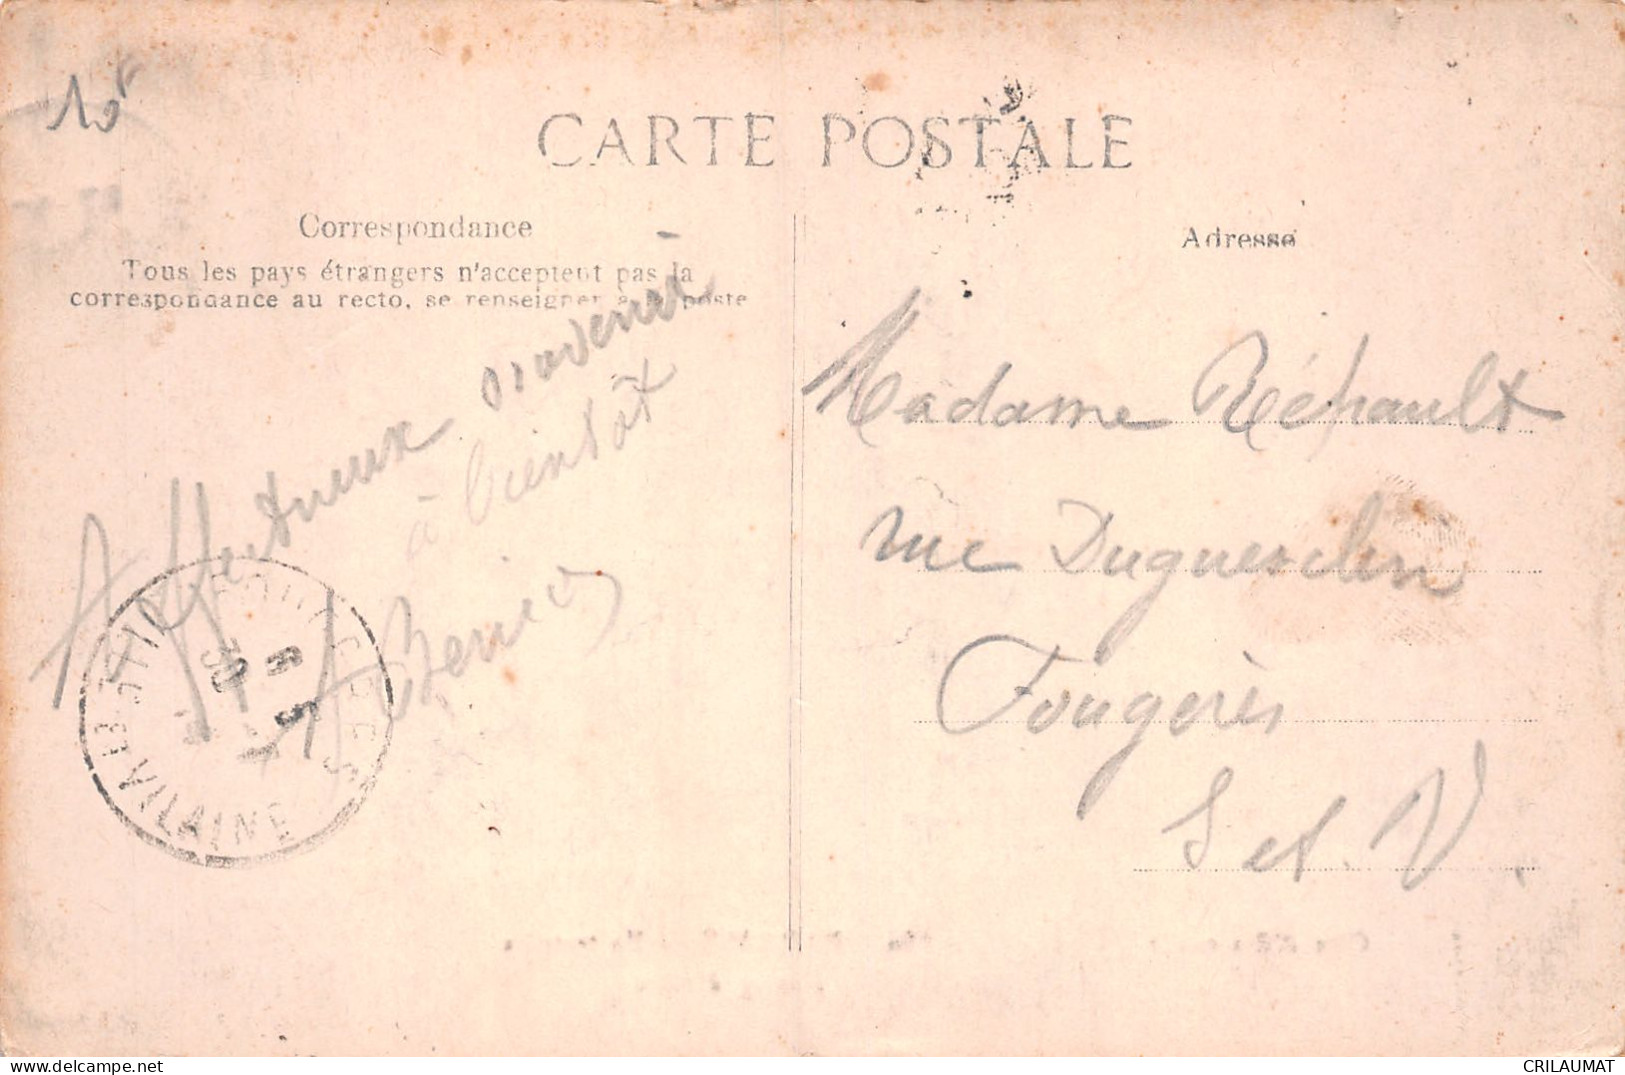 10F
CARTE POSTALE
Correspondance
Tous les pays étrangers n'acceptent pas la
correspondance au recto, se renseigner à la poste
Affectueux souvenir
à bientôt
Adresse
Madame Réhault
rue Duguesclin
Fougères
I et V
FOUGERES
ILLE-ET-VILAINE
CRILAUMAT